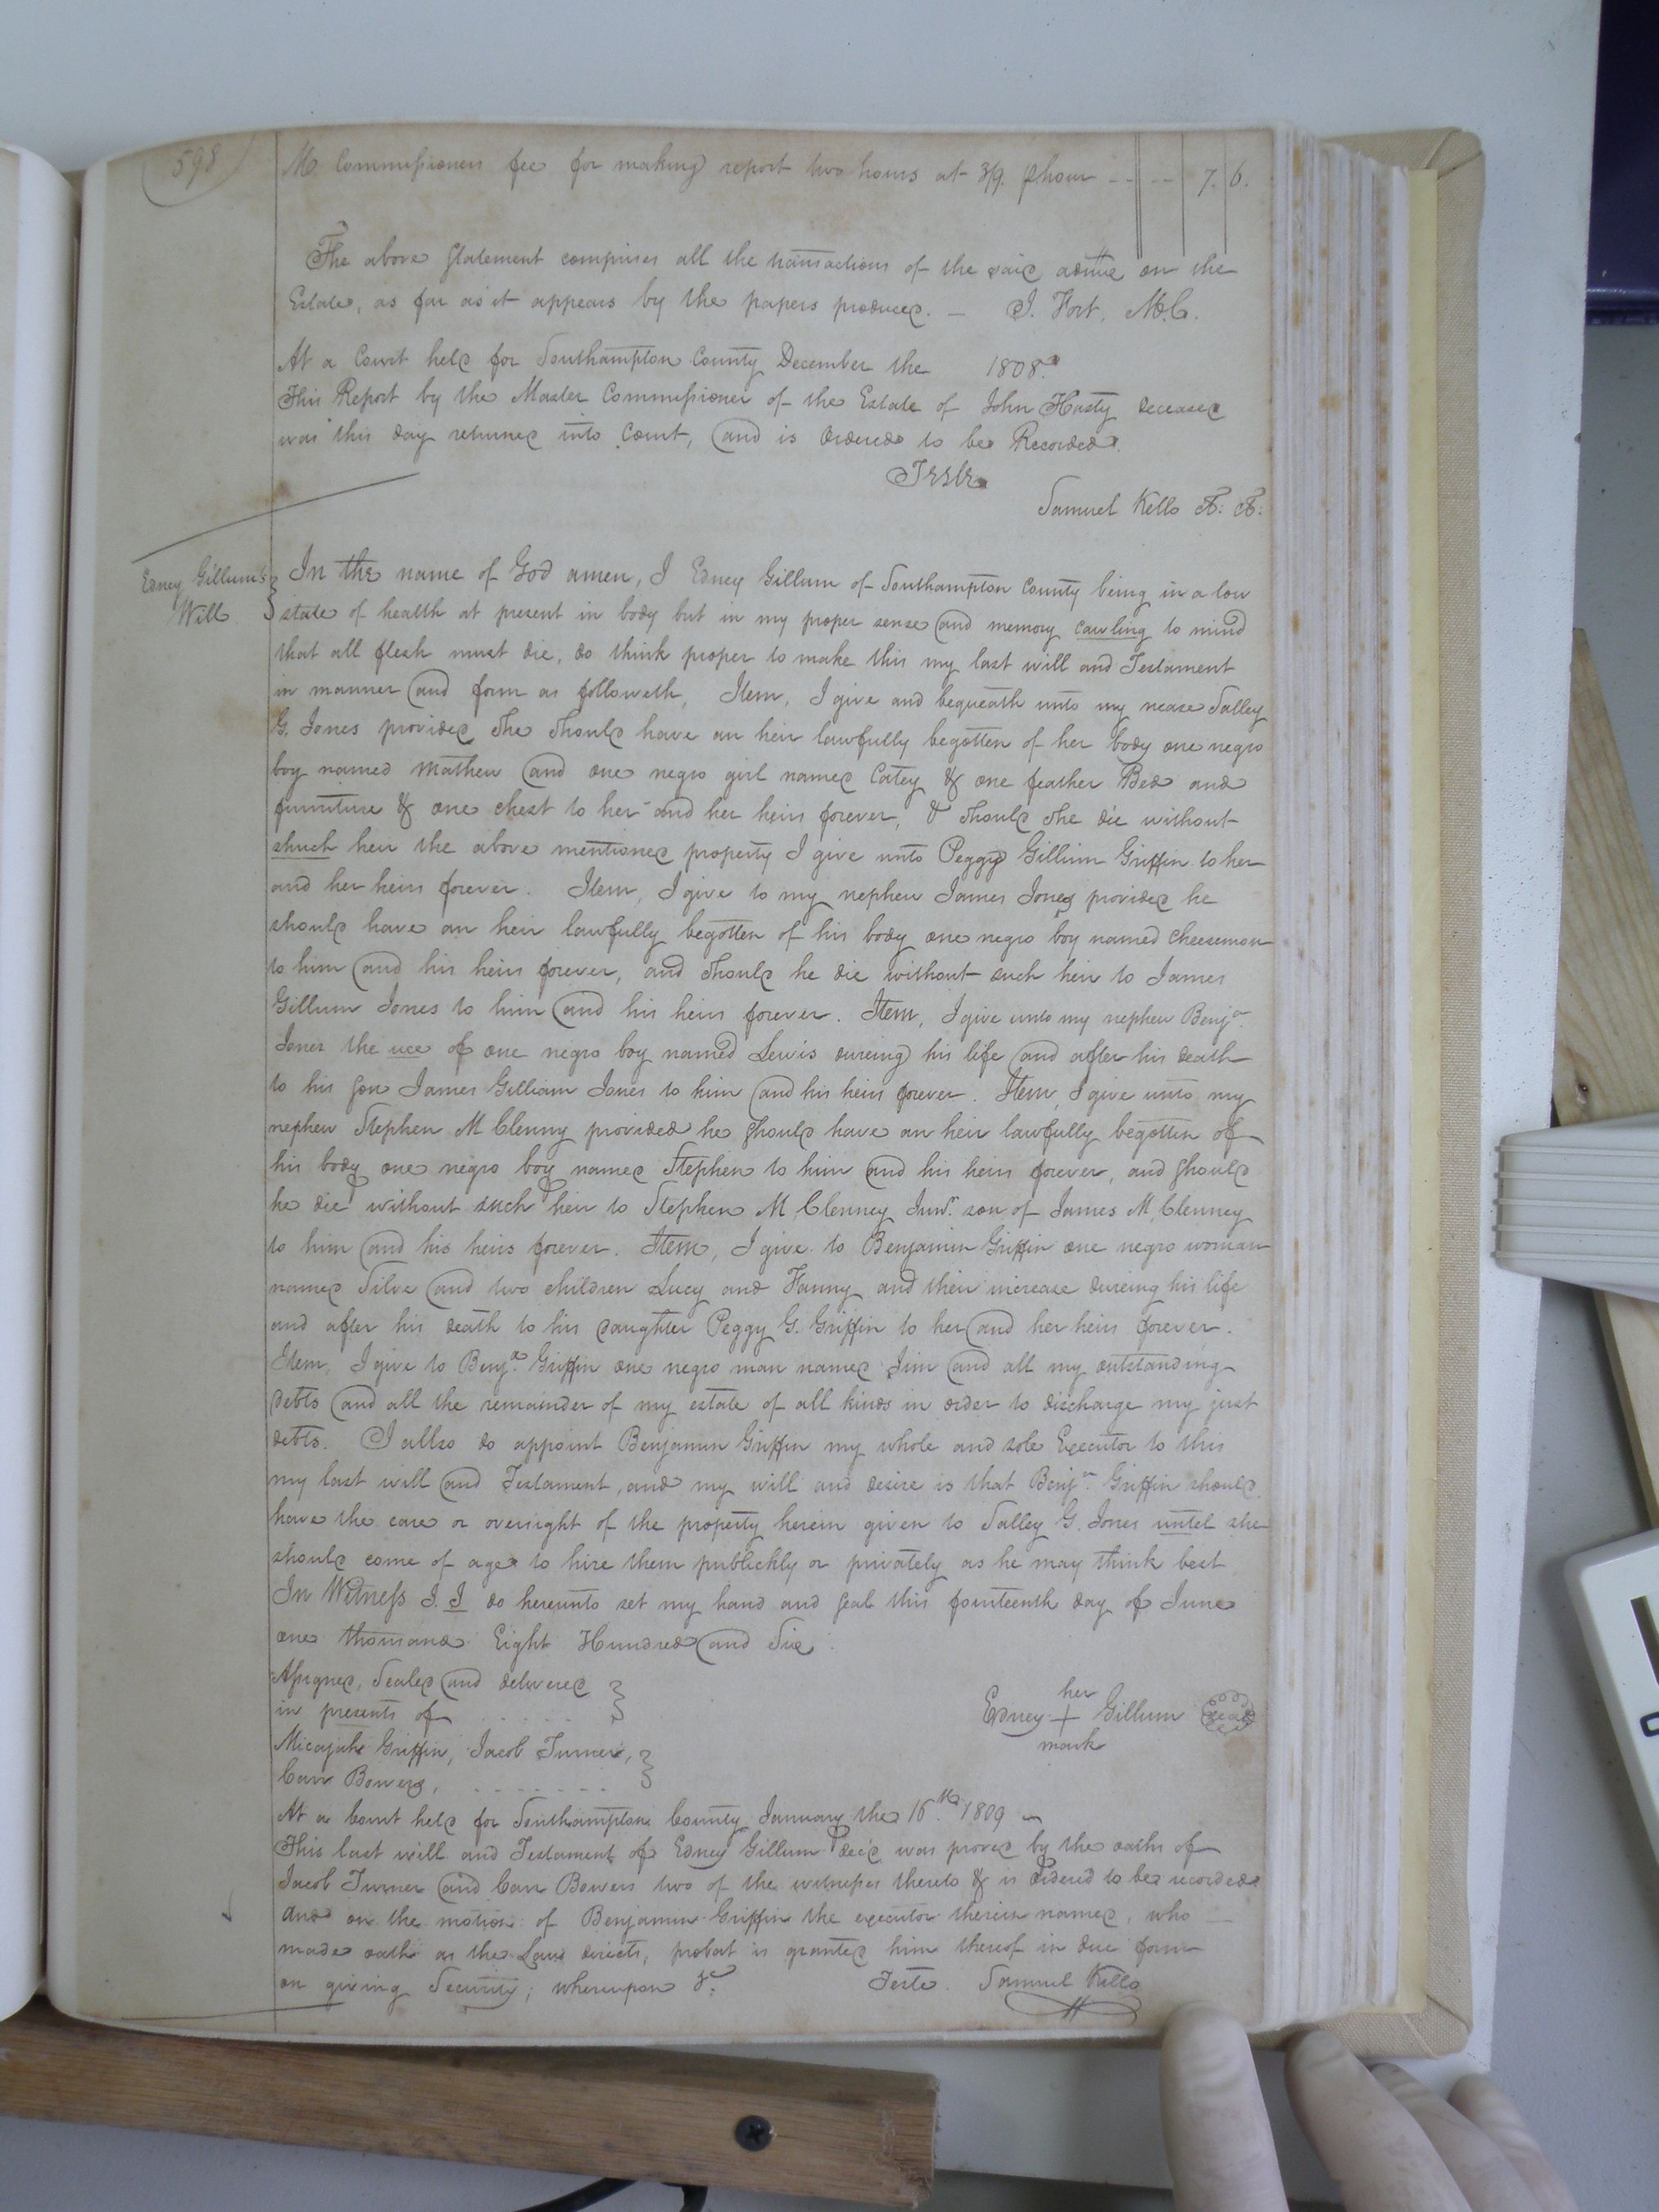 598
M. Commissioners fee for making report two hours at 3/9. p hour - - - - 7. 6.
The above Statement comprises all the transactions of the said admr. on the
Estate, as far as it appears by the papers produced. — J. Fort, M.C.
At a Court held for Southampton County December the 1808.
This Report by the Master Commissioner of the Estate of John Hasty deceased
was this day returned into Court, and is Ordered to be Recorded.
Teste
Samuel Kello
Edney Gillum's
Will
In the name of God amen, I Edney Gillum of Southampton County being in a low
state of health at present in body but in my proper sense and memory cawling to mind
that all flesh must die, do think proper to make this my last will and Testament
in manner and form as followeth, Item, I give and bequeath unto my nease Salley
G. Jones provided She Should have an heir lawfully begotten of her body one negro
boy named Mathew and one negro girl named Catey & one feather Bed and
furniture & one chest to her and her heirs forever, & Should She die without
shuch heir the above mentioned property I give unto Peggy Gillium Griffin to her
and her heirs forever. Item, I give to my nephew James Jones provided he
should have an heir lawfully begotten of his body one negro boy named Cheeseman
to him and his heirs forever, and Should he die without such heir to James
Gillum Jones to him and his heirs forever. Item, I give unto my nephew Benja.
Jones the uce of one negro boy named Lewis dureing his life and after his death
to his Son James Gilliam Jones to him and his heirs forever. Item, I give unto my
nephew Stephen M Clenny provided he Should have an heir lawfully begotten of
his body one negro boy named Stephen to him and his heirs forever, and Should
he die without such heir to Stephen M Clenney Junr. son of James M Clenney
to him and his heirs forever. Item, I give to Benjamin Griffin one negro woman
named Silve and two children Lucy and Fanny and their increase dureing his life
and after his death to his daughter Peggy G. Griffin to her and her heirs forever.
Item, I give to Benja. Griffin one negro man named Jim and all my outstanding
debts and all the remainder of my estate of all kinds in order to discharge my just
debts. I allso do appoint Benjamin Griffin my whole and sole Executor to this
my last will and Testament, and my will and desire is that Benja. Griffin should
have the care or oversight of the property herein given to Salley G. Jones untel she
should come of age to hire them publickly or privately as he may think best
In Witness I. I do hereunto set my hand and Seal this fourteenth day of June
one thousand Eight Hundred and Six.
Assigned, Sealed and delivered
in presents of . . . . .
her
Edney + Gillum Seal
mark
Micajah Griffin, Jacob Turner,
Carr Bowers, . . . . . . . .
At a Court held for Southampton County January the 16th. 1809
This last will and Testament of Edney Gillum dec'd was proved by the oaths of
Jacob Turner and Carr Bowers two of the witnesses thereto & is Ordered to be recorded
And on the motion of Benjamin Griffin the executor therein named, who
made oath as the Law directs, probat is granted him thereof in due form
on giving Security; whereupon &c.
Teste. Samuel Kello